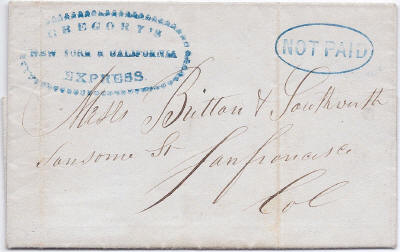 GREGORY'S
NEW YORK & CALIFORNIA
EXPRESS.
NOT PAID
Mess Britton & Southworth
Sansome St Sanfrancisco
Cal